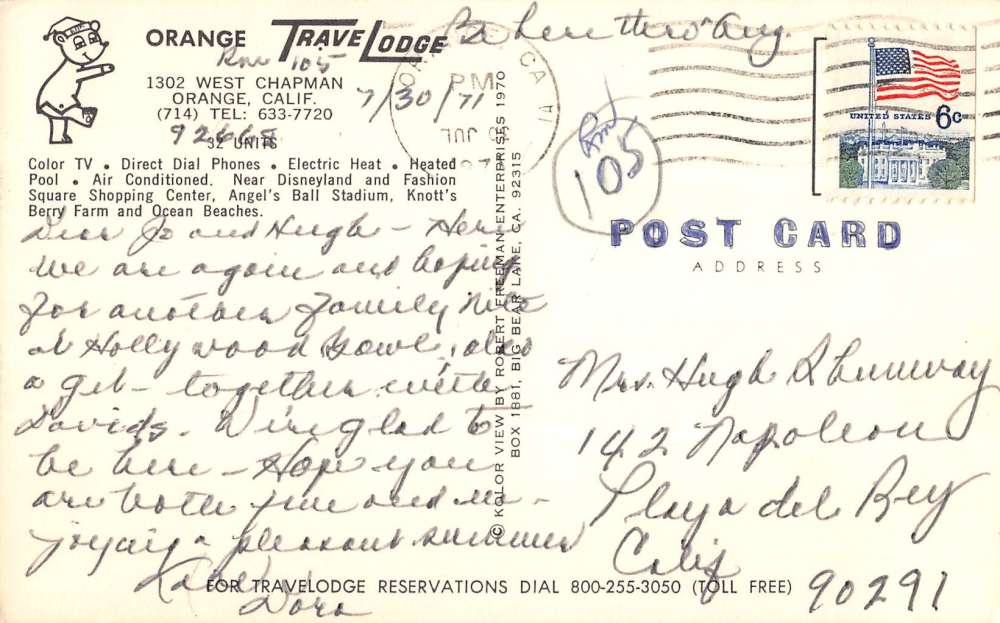 ORANGE TRAVELODGE
Rm 105
1302 WEST CHAPMAN
ORANGE, CALIF.
(714) TEL: 633-7720
92668
32 UNITS
Color TV • Direct Dial Phones • Electric Heat • Heated
Pool • Air Conditioned. Near Disneyland and Fashion
Square Shopping Center, Angel's Ball Stadium, Knott's
Berry Farm and Ocean Beaches.
Be here thro' Aug.
7/30/71
CA
PM
Rm
105
UNITED STATES 6c
Dear Jo and Hugh - Here
we are again and hoping
for another family nite
at Hollywood Bowl, also
a get-together with
Davids. We're glad to
be here - Hope you
are both fine and en-
joying a pleasant summer
Love
Dora
© KOLOR VIEW BY ROBERT FREEMAN ENTERPRISES 1970
BOX 1881, BIG BEAR LANE, CA. 92315
POST CARD
ADDRESS
Mrs. Hugh Shumway
142 Napoleon
Playa del Rey
Calif
90291
FOR TRAVELODGE RESERVATIONS DIAL 800-255-3050 (TOLL FREE)